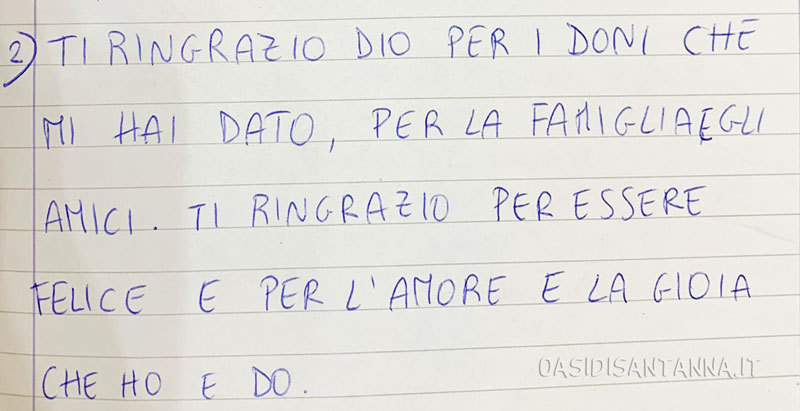 2) TI RINGRAZIO DIO PER I DONI CHE
MI HAI DATO, PER LA FAMIGLIA E GLI
AMICI. TI RINGRAZIO PER ESSERE
FELICE E PER L'AMORE E LA GIOIA
CHE HO E DO.
OASIDISANTANNA.IT